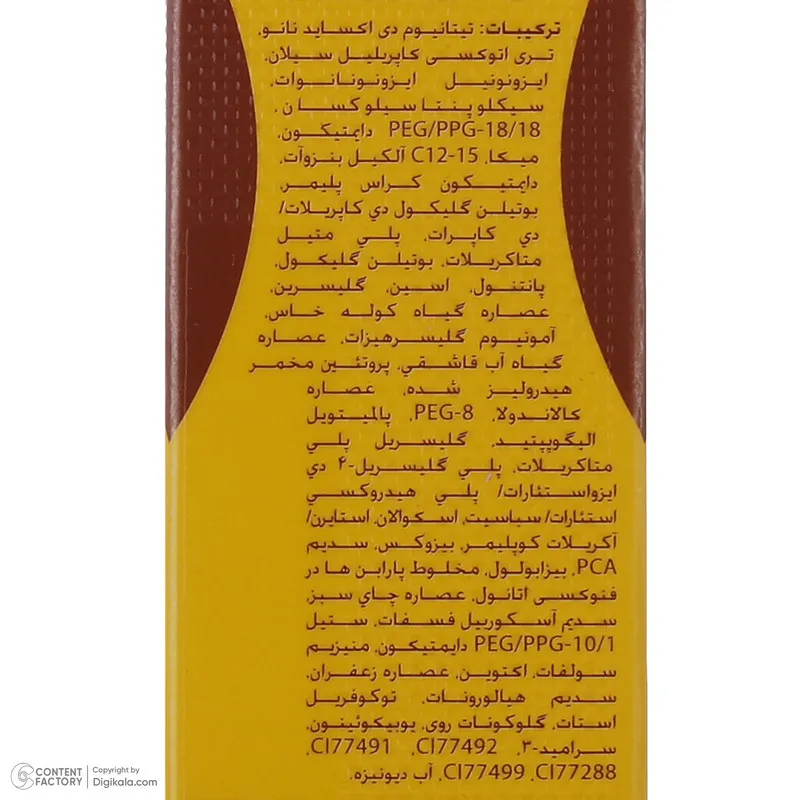 ترکیبات: تیتانیوم دی اکساید نانو،
تری اتوکسی کاپریلیل سیلان،
ایزونونیل ایزونونانوات،
سیکلو پنتا سیلو کسان،
PEG/PPG-18/18 دایمتیکون،
میکا، C12-15 آلکیل بنزوآت،
دایمتیکون کراس پلیمر،
بوتیلن گلیکول دي کاپریلات/
دي کاپرات، پلي متیل
متاکریلات، بوتیلن گلیکول،
پانتنول، اسین، گلیسرین،
عصاره گیاه کوله خاس،
آمونیوم گلیسرهیزات، عصاره
گیاه آب قاشقي، پروتئین مخمر
هیدرولیز شده، عصاره
کالاندولا، PEG-8، پالمیتویل
الیگوپپتید، گلیسریل پلی
متاکریلات، پلي گلیسریل-۴ دي
ایزواستئارات/ پلي هیدروکسي
استئارات/ سباسیت، اسکوالان، استایرن/
آکریلات کوپلیمر، بیزوکس، سدیم
PCA، بیزابولول، مخلوط پارابن ها در
فنوکسی اتانول، عصاره چاي سبز،
سدیم آسکوربیل فسفات، ستیل
PEG/PPG-10/1 دایمتیکون، منیزیم
سولفات، اکتوین، عصاره زعفران،
سدیم هیالورونات، توکوفریل
استات، گلوکونات روی، یوبیکوئینون،
سرامید-۳، CI77492، CI77491،
CI77288، CI77499، آب دیونیزه.
CONTENT FACTORY
Copyright by Digikala.com